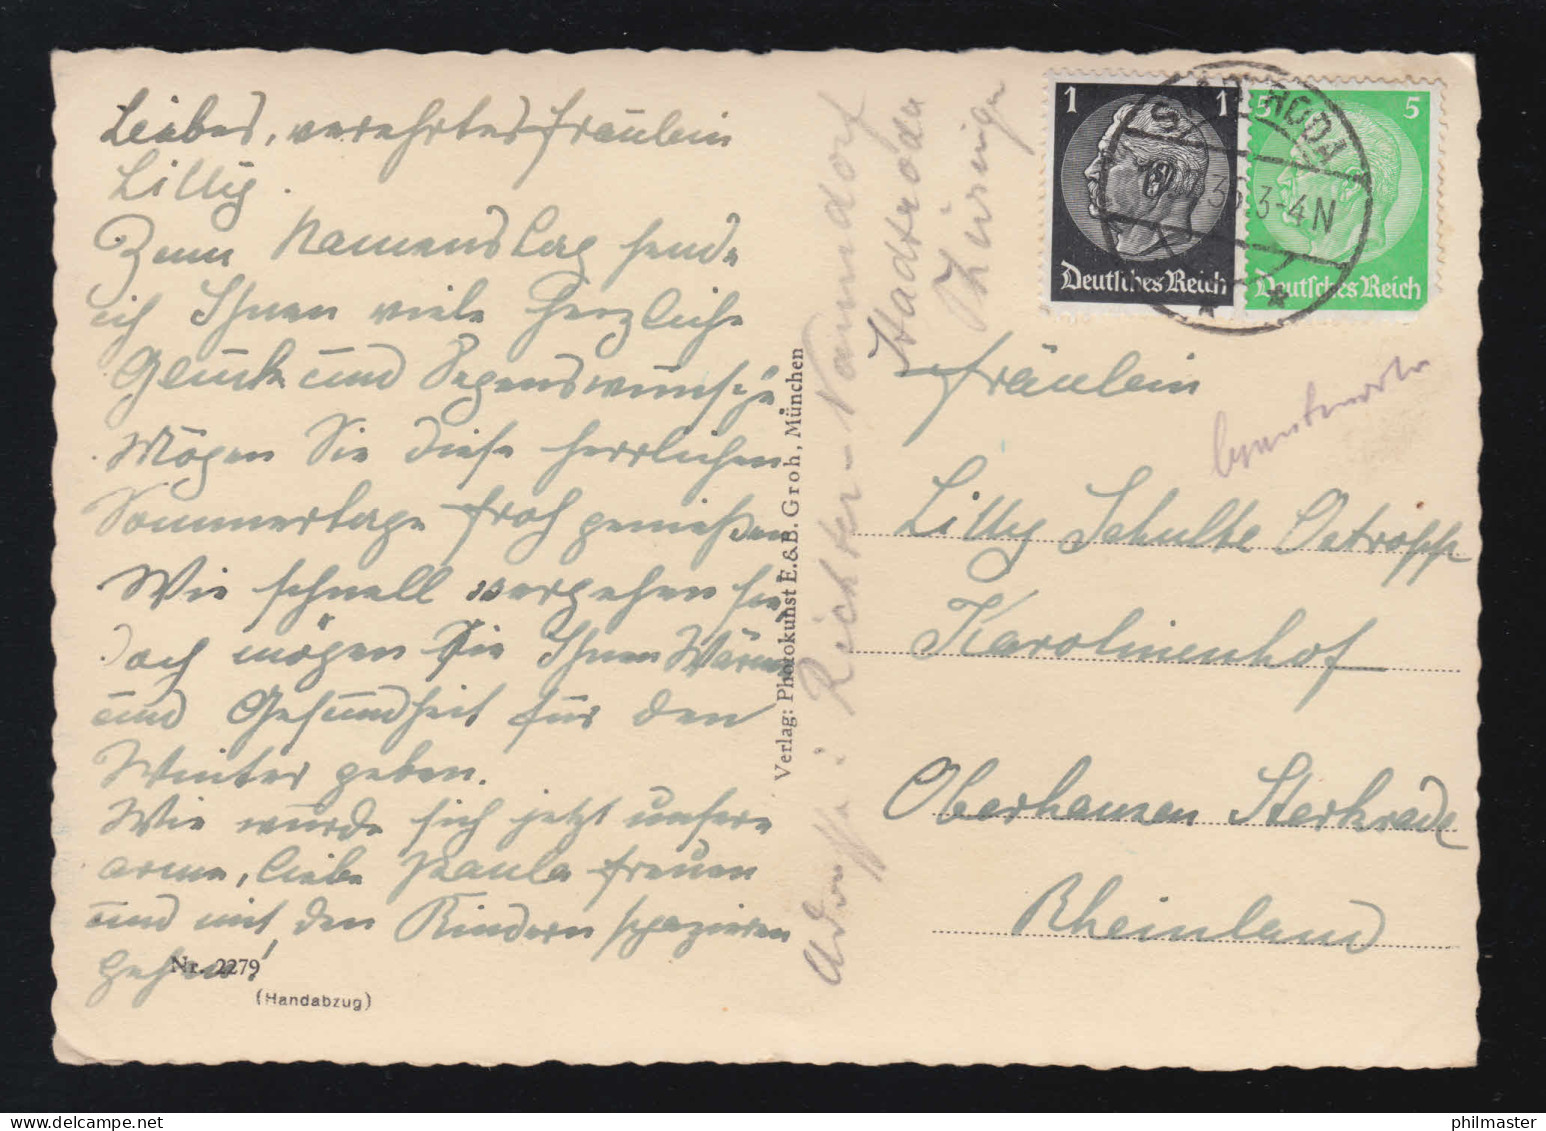 Liebes, verehrtes Fräulein
Lilly.
Zum Namenstag sende
ich Ihnen viele herzliche
Glück und Segenswünsche
Mögen Sie diese herrlichen
Sommertage froh genießen
Wie schnell vergehen sie
Doch mögen sie Ihnen Wärme
und Gesundheit für den
Winter geben.
Wie würde sich jetzt unsere
arme, liebe Paula freuen
und mit den Kindern spazieren
gehen!
Nr. 2279
(Handabzug)
Verlag: Photokunst E.&B. Groh, München
Richter-Naumdorf
Stadtroda
Thüringen
1 1
Deutsches Reich
5 5
Deutsches Reich
STADTRODA
3-4N
Fräulein
Lilly Schulte Ostropp
Karolinenhof
Oberhausen Sterkrade
Rheinland
philmaster